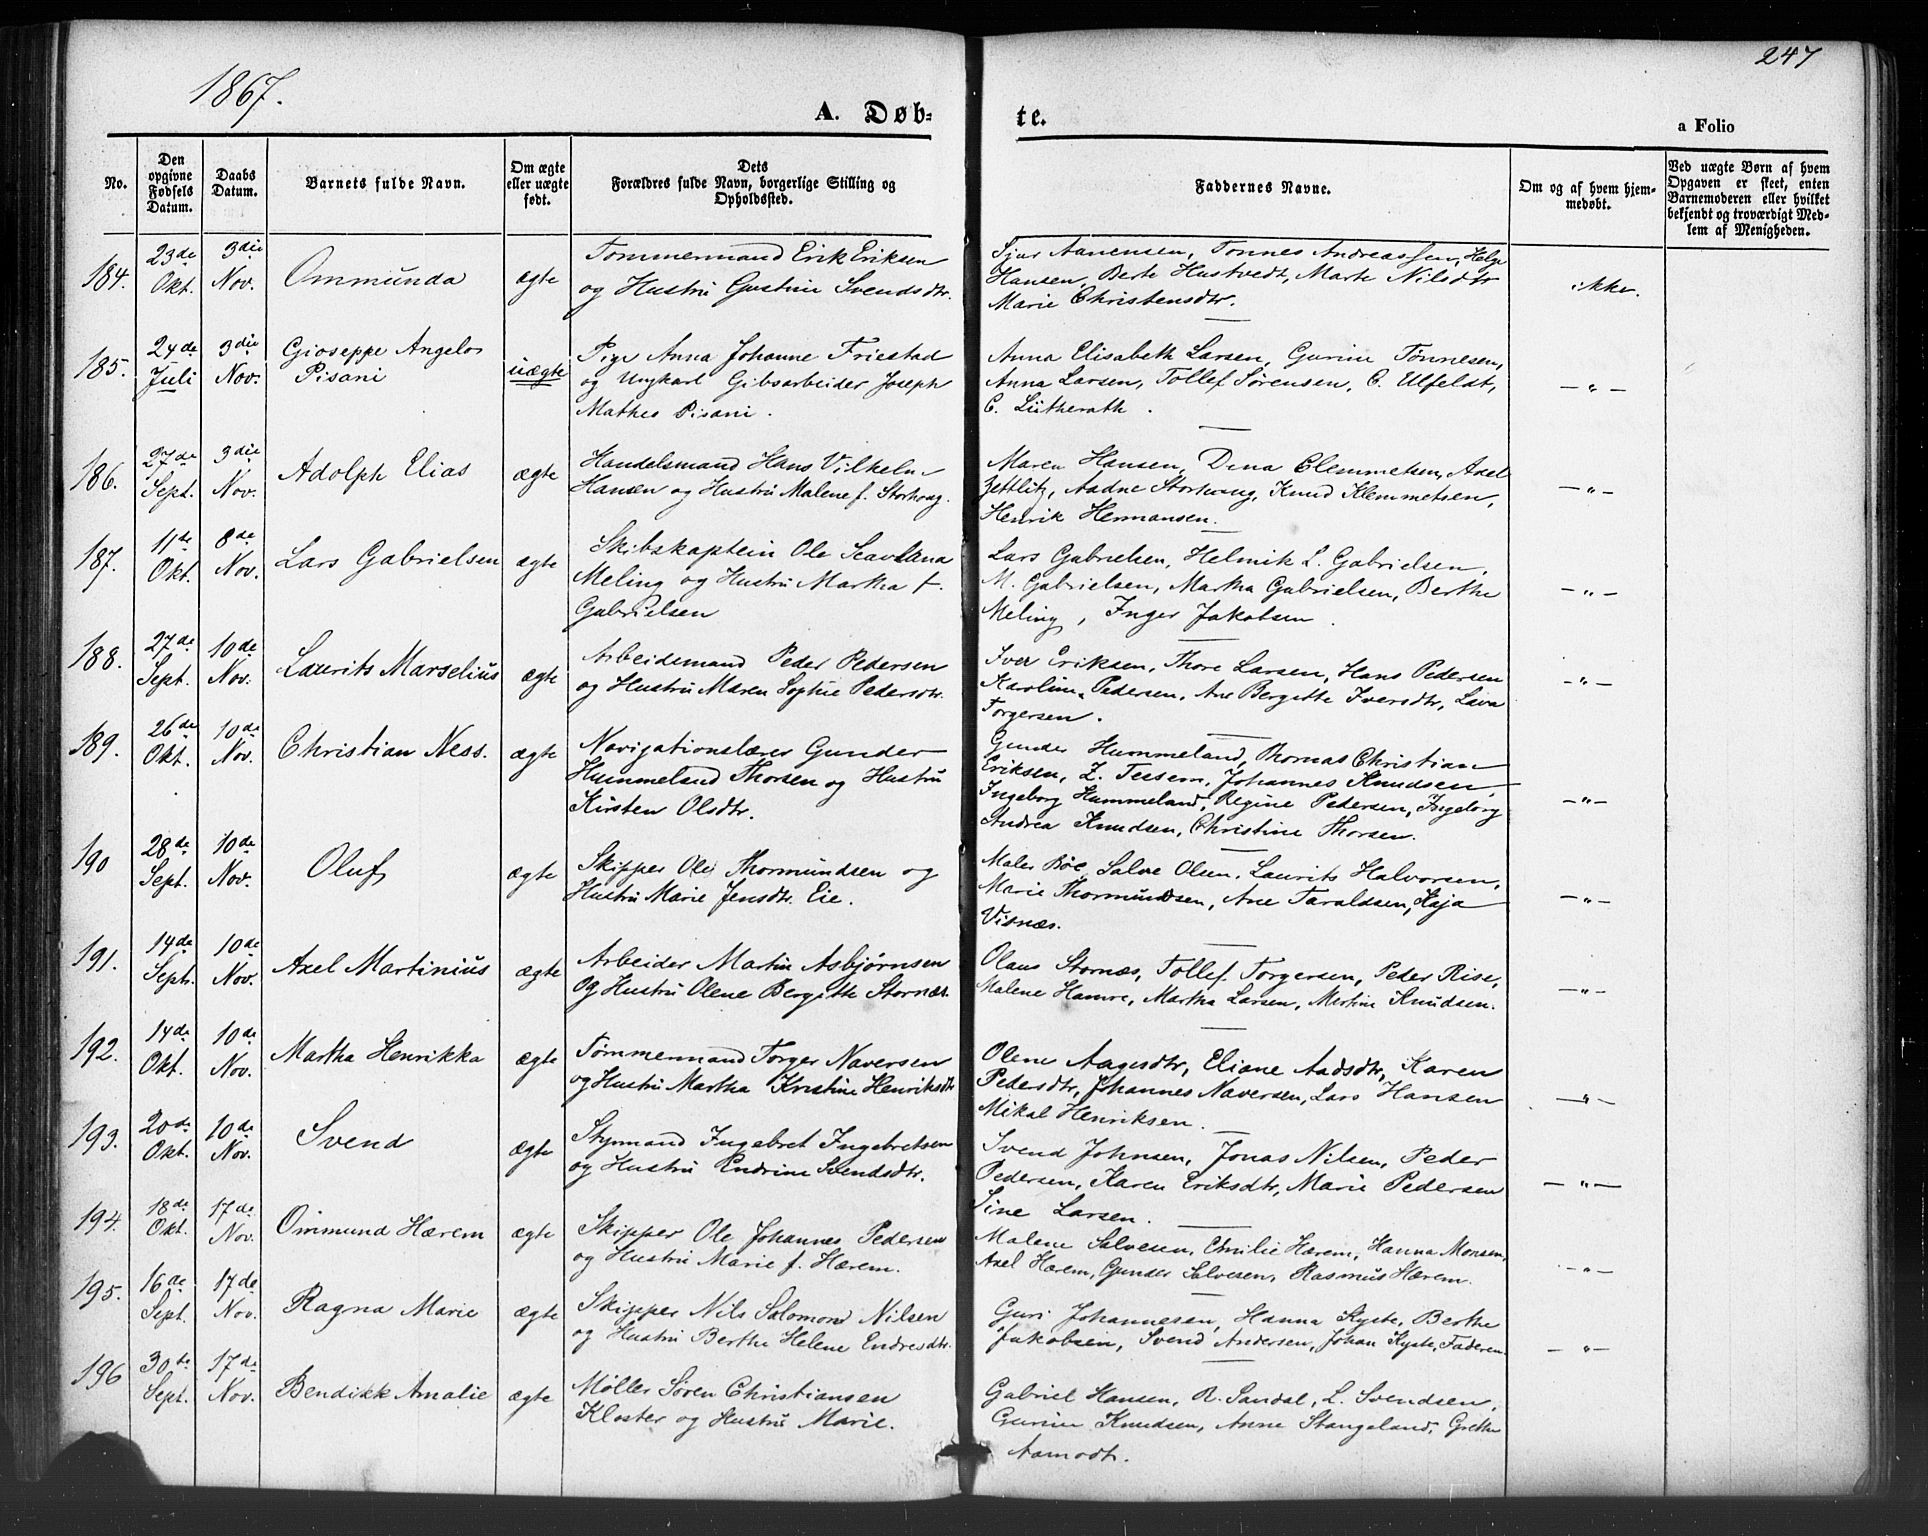 1867.
247
A. Døb-
te.
a Folio
No.
Den opgivne Fødsels Datum.
Daabs Datum.
Barnets fulde Navn.
Om ægte eller uægte født.
Dets Forældres fulde Navn, borgerlige Stilling og Opholdssted.
Faddernes Navne.
Om og af hvem hjem-medøbt.
Ved uægte Børn af hvem Opgaven er skeet, enten Barnemoderen eller hvilket bekjendt og troværdigt Med-lem af Menigheden.
184. 23de Okt. 3die Nov. Ommunda ægte
Tømmermand Erik Eriksen
og Hustru Gustine Svendsdtr.
Sjur Aanensen, Tønnes Andreassen, Helge
Hansen, Berte Hustvedt, Marte Nilsdtr
Marie Christensdtr.
ikke.
185. 24de Juli 3die Nov. Gioseppe Angelo
Pisani uægte
Pige Anna Johanne Friestad
og Ungkarl Gibsarbeider Joseph
Mathes Pisani.
Anna Elisabeth Larsen, Gurine Tønnesen,
Anna Larsen, Tollef Sørensen, C. Ulfeldt,
C. Lütherath.
— „ —
186. 27de Sept. 3die Nov. Adolph Elias ægte
Handelsmand Hans Vilhelm
Hansen og Hustru Malene f. Storhoug.
Maren Hansen, Dina Clemmetsen, Axel
Zettlitz, Aadne Storhoug, Knud Klemmetsen,
Henrik Hermansen.
— „ —
187. 11te Okt. 8de Nov. Lars Gabrielsen ægte
Skibskaptein Ole Scavlana
Meling og Hustru Martha f.
Gabrielsen
Lars Gabrielsen, Helmik L. Gabrielsen,
M. Gabrielsen, Martha Gabrielsen, Berthe
Meling, Inger Jakobsen.
— „ —
188. 27de Sept. 10de Nov. Laurits Marselius ægte
Arbeidsmand Peder Pedersen
og Hustru Maren Sophie Pedersdtr.
Iver Eriksen, Thore Larsen, Hans Pedersen
Karoline Pedersen, Ane Bergitte Iversdtr, Lava
Torgersen.
— „ —
189. 26de Okt. 10de Nov. Christian Ness. ægte
Navigationslærer Gunder
Hummeland Thorsen og Hustru
Kirsten Olsdtr.
Gunder Hummeland, Thomas Christian
Eriksen, Z. Johannes Knudsen,
Ingeborg Hummeland, Regine Pedersen, Ingeborg
Andrea Knudsen, Christine Thorsen.
— „ —
190 28de Sept. 10de Nov. Oluf ægte
Skipper Ole Thormundsen og
Hustru Marie Jensdtr. Eie.
Maler Bøe, Salve Olsen, Laurits Halvorsen,
Marie Thormundsen, Ane Taraldsen, Kaja
Visnæs.
— „ —
191. 14de Sept. 10de Nov. Axel Martinius ægte
Arbeider Martin Asbjørnsen
og Hustru Olene Bergitte Stornæs.
Olaus Stornæs, Tollef Torgersen, Peder Rise,
Malene Hamre, Martha Larsen, Martine Knudsen.
— „ —
192. 14de Okt. 10de Nov. Martha Henrikka ægte
Tømmermand Torger Naversen
og Hustru Martha Kristine Henriksdtr
Olene Aagesdtr, Eliane Aadsdtr, Karen
Pedersdtr, Johannes Naversen, Lars Hansen
Mikal Henriksen.
— „ —
193. 20de Okt. 10de Nov. Svend ægte
Styrmand Ingebret Ingebretsen
og Hustru Endrine Svendsdtr.
Svend Johnsen, Jonas Nilsen, Peder
Pedersen, Karen Eriksdtr, Marie Pedersen
Sine Larsen.
— „ —
194. 18de Okt. 17de Nov. Ommund Hærem ægte
Skipper Ole Johannes Pedersen
og Hustru Marie f. Hærem.
Malene Salvesen, Emilie Hærem, Hanna Monsen,
Axel Hærem, Gunder Salvesen, Rasmus Hærem.
— „ —
195. 16de Sept. 17de Nov. Ragna Marie ægte
Skipper Nils Salomond Nilsen
og Hustru Berthe Helene Endresdtr.
Guri Johannesen, Hanna Kyste, Berthe
Jakobsen, Svend Andersen, Johan Kyste, Faderen.
— „ —
196 30te Sept. 17de Nov. Bendikk Amalie ægte
Møller Søren Christiansen
Kloster og Hustru Marie.
Gabriel Hansen, R. Sandal, L. Svendsen,
Gurine Knudsen, Anne Stangeland, Grethe
Aamodt.